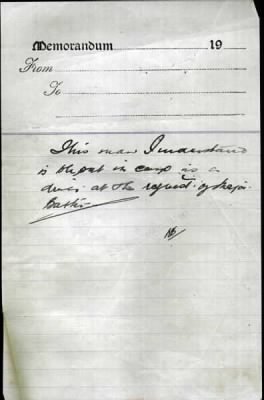 Memorandum 19
From
To
This man I understand
is in camp as a
at the request of Major